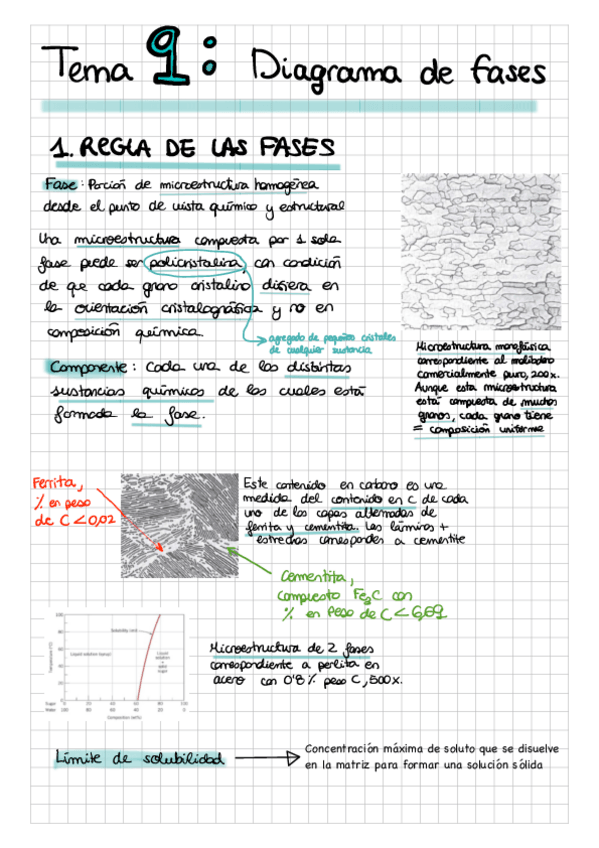 Tema 9: Diagrama de fases
1. REGLA DE LAS FASES
Fase: Porción de microestructura homogénea
desde el punto de vista químico y estructural
Una microestructura compuesta por 1 sola
fase puede ser policristalina, con condición
de que cada grano cristalino difiera en
la orientación cristalográfica y no en
composición química.
agregado de pequeños cristales
de cualquier sustancia
Componente: Cada una de las distintas
sustancias químicas de las cuales está
formada la fase.
Microestructura monofásica
correspondiente al molibdeno
comercialmente puro, 200x.
Aunque esta microestructura
está compuesta de muchos
granos, cada grano tiene
= composición uniforme
Ferrita,
% en peso
de C < 0,02
Este contenido en carbono es una
medida del contenido en C de cada
una de las capas alternadas de
ferrita y cementita. Las láminas +
estrechas corresponden a cementite
Cementita,
compuesto Fe3C con
% en peso de C < 6,69
Temperature (°C)
100
80
60
40
20
0
Solubility limit
Liquid solution (syrup)
Liquid
solution
+
solid
sugar
Sugar 0 20 40 60 80 100
Water 100 80 60 40 20 0
Composition (wt%)
Microestructura de 2 fases
correspondiente a perlita en
acero con 0'8% peso C, 500x.
Límite de solubilidad
Concentración máxima de soluto que se disuelve
en la matriz para formar una solución sólida